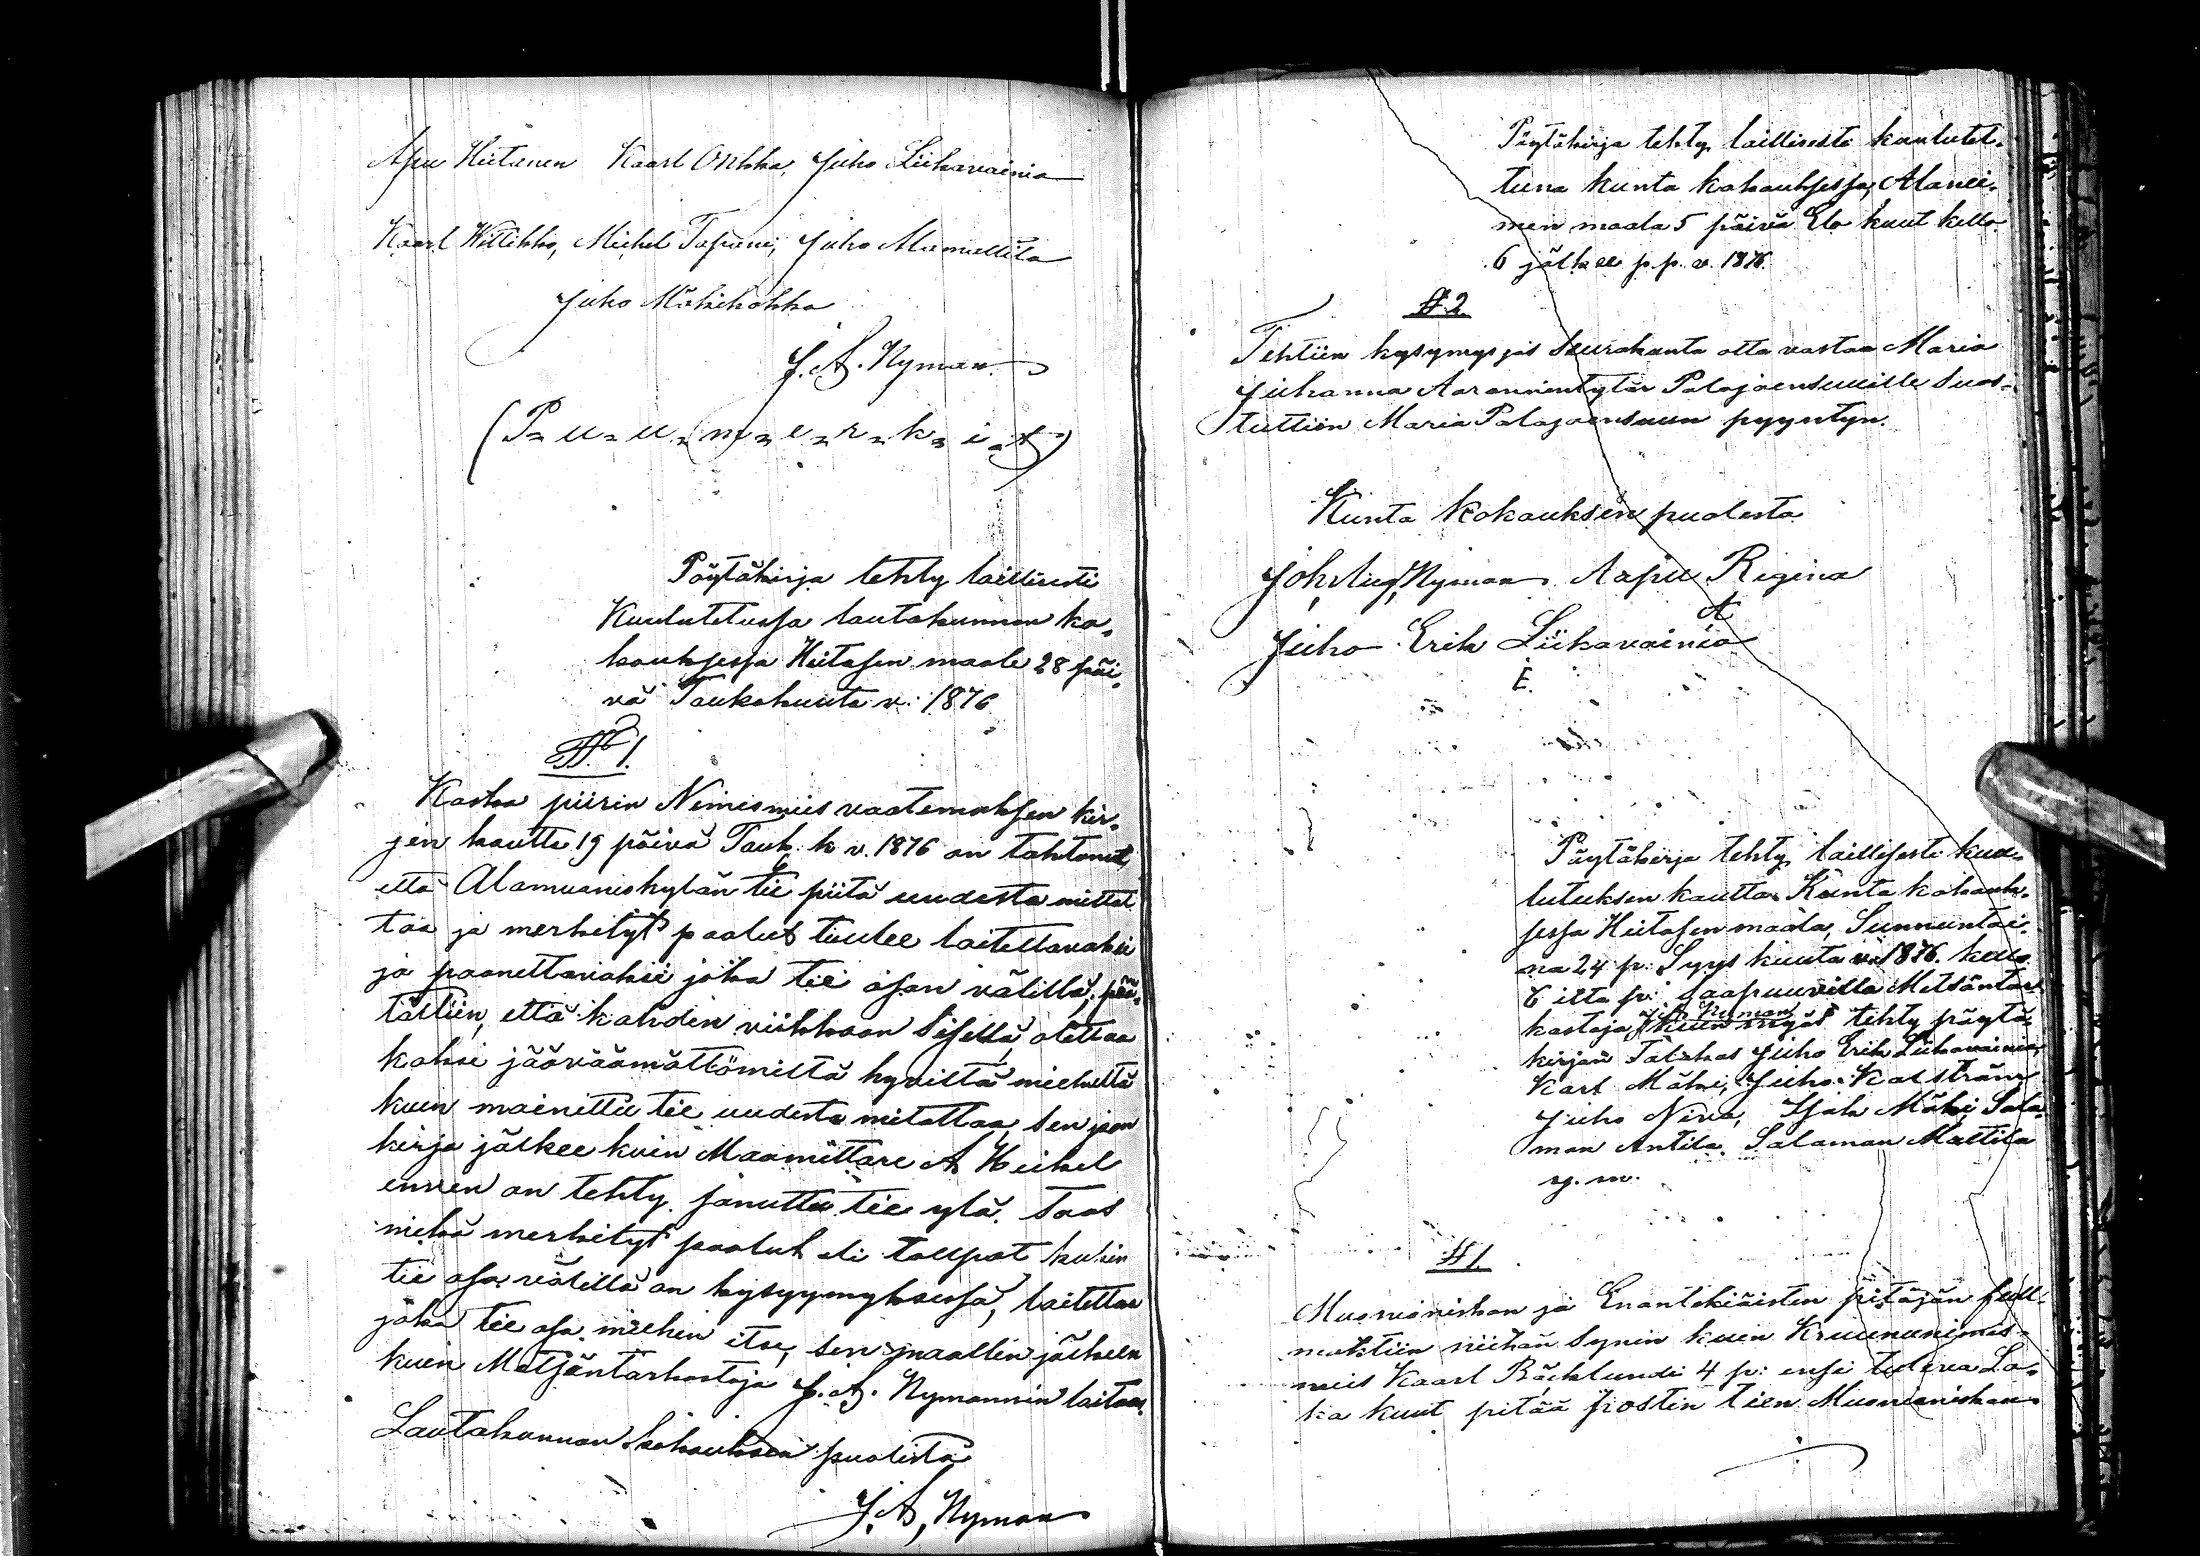 Apu Hietanen Kaarl Onkka, Juho Liikavainio
Kaarl Willikko, Michel Tapani, Juho Alamuttila
Juho Mäkikokko
J. A. Nyman
(P=u=u=m=e=r=k=i=t)
Pöytäkirja tehty laillisesti
Kuulutetussa lautakunnan ko-
kouksessa Hietasen maale 28 päi-
vä Toukokuuta v. 1876
§ 1.
Koska piirin Nimismies vaatemuksen kir-
jen kautta 19 päivä Touk. k v. 1876 on tahtonut,
että Alamuonioskylän tie piitä uudesta mittat
taa ja merkityt paalut tuulee laitettavaksi
ja paanettavaksi joka tie osan välillä, pää-
tättiin, että kahden viikkoon sisellä, otettaa
kaksi jääväämättömiltä hyviltä mieheltä
kuen mainittu tie uudesta mitattaa, sen jaon
kirja jälkee kuin Maamittare A Heikel
ennen on tehty sanuttu tie ylä. Taas
mikä merkityt paalut eli tolipat kuhin
tie osa välillä on kysyymyksessä, laitettaa
joka tie osa miehin itse, sen maallin jälkeen
kuin Metsäntarkastaja J. A. Nymannin laitaa.
Lautakunnan kokouksen puolesta
J. A. Nyman
Pöytäkirja tehty laillisesti kuulutet-
tuna kunta kokouksessa, Alanei-
men maala 5 päivä Elo kuut kello
6 jälkee p.p. v. 1876.
§ 2
Tehtiin kysymys jos Seurakunta otta vastaa Maria
Juhanna Aaronnintytär Palojoensuulle suos-
tuttiin Maria Palojoensuun pyyntyn.
Kunta kokouksen puolesta
Joh. Aug. Nyman Aapu Rigina
A
Juho Erik Liikavainio
E.
Pöytäkirja tehty laillisesti kuu-
lutuksen kautta Kunta kokouk-
sessa Hietasen maala, Sunnuntai-
na 24 p: Syys kuuta v. 1876. kello
6 ilta p: saapuuvilla Metsäntar-
kastaja J. A. Nyman kuin myös tehty pöytä-
kirjan Juho Erik Liikavainio,
Karl Mäki, Juho Kalström
Juho Niva, Isak Mäki Salo-
mon Antila. Salamon Mattila
y. m.
§ 1
Muonionniskan ja Enontekiäisten pitäjän full-
mäktiin niihän synin kuen Kruununimis-
mies Kaarl Bäcklundi 4 p: ensi tuleva Lo-
ka kuut pitää postin tien Muonionniskan